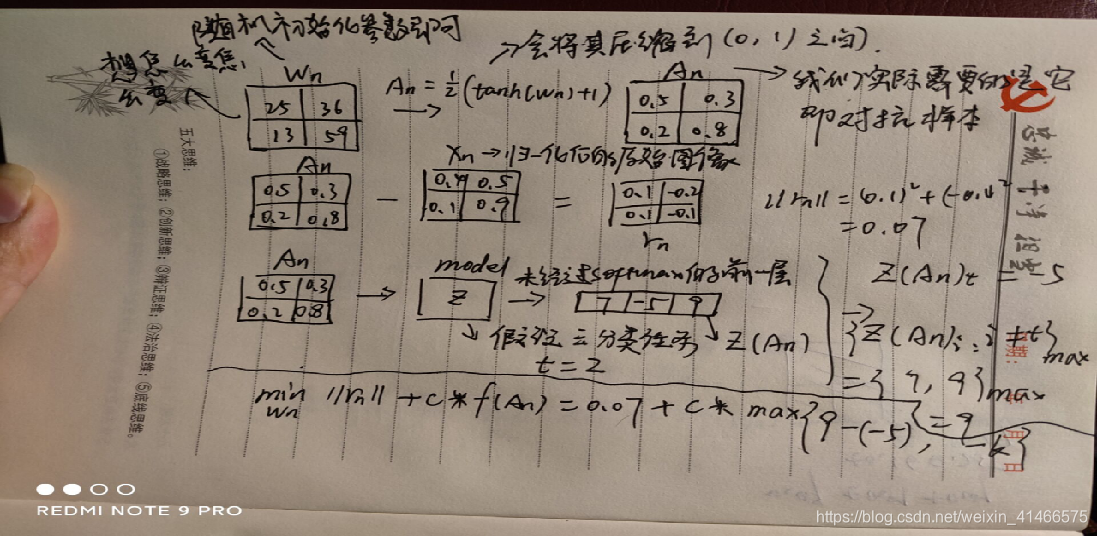 随机初始化参数即可
→会将其压缩到(0,1)之间).
想怎么变焦,
么变
Wn
25 36
13 59
An = 1/2 (tanh(Wn)+1)
→
An
0.5 0.3
0.2 0.8
→ 我们实际需要的是它
即对抗样本
Xn → 归一化后的原始图像
An
0.5 0.3
0.2 0.8
−
0.4 0.5
0.1 0.9
=
0.1 -0.2
0.1 -0.1
rn
||rn|| = (0.1)² + (-0.1)²
= 0.07
An
0.5 0.3
0.2 0.8
→
model
Z
→
未经过softmax的前一层
7 -5 9
假设 三分类任务
t = 2
Z(An)
Z(An)t = -5
{Z(An)i, i ≠ t}max
= {7, 9}max
= 9
min ||rn|| + C * f(An) = 0.07 + C * max{9-(-5), -k}
Wn
五大思维:
①战略思维;②创新思维;③辩证思维;④法治思维;⑤底线思维。
忠诚 干净 担当
月 日
REDMI NOTE 9 PRO
https://blog.csdn.net/weixin_41466575